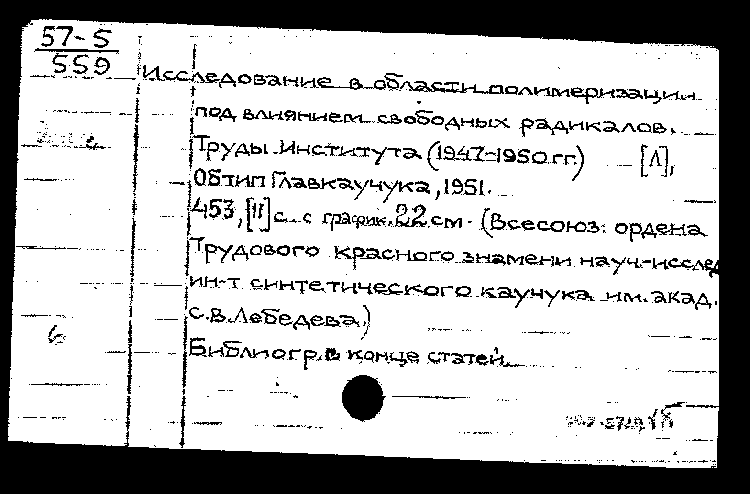 57-5
559
Исследование в области полимеризации
под влиянием свободных радикалов.
Труды Института (1947-1950 гг.) [Л],
ОБтип Главкаучука, 1951.
453, [11] с. с график. 22 см. (Всесоюз. ордена
Трудового красного знамени науч-исслед
ин-т синтетического каучука им. акад.
С.В. Лебедева.)
6
Библиогр. в конце статей.